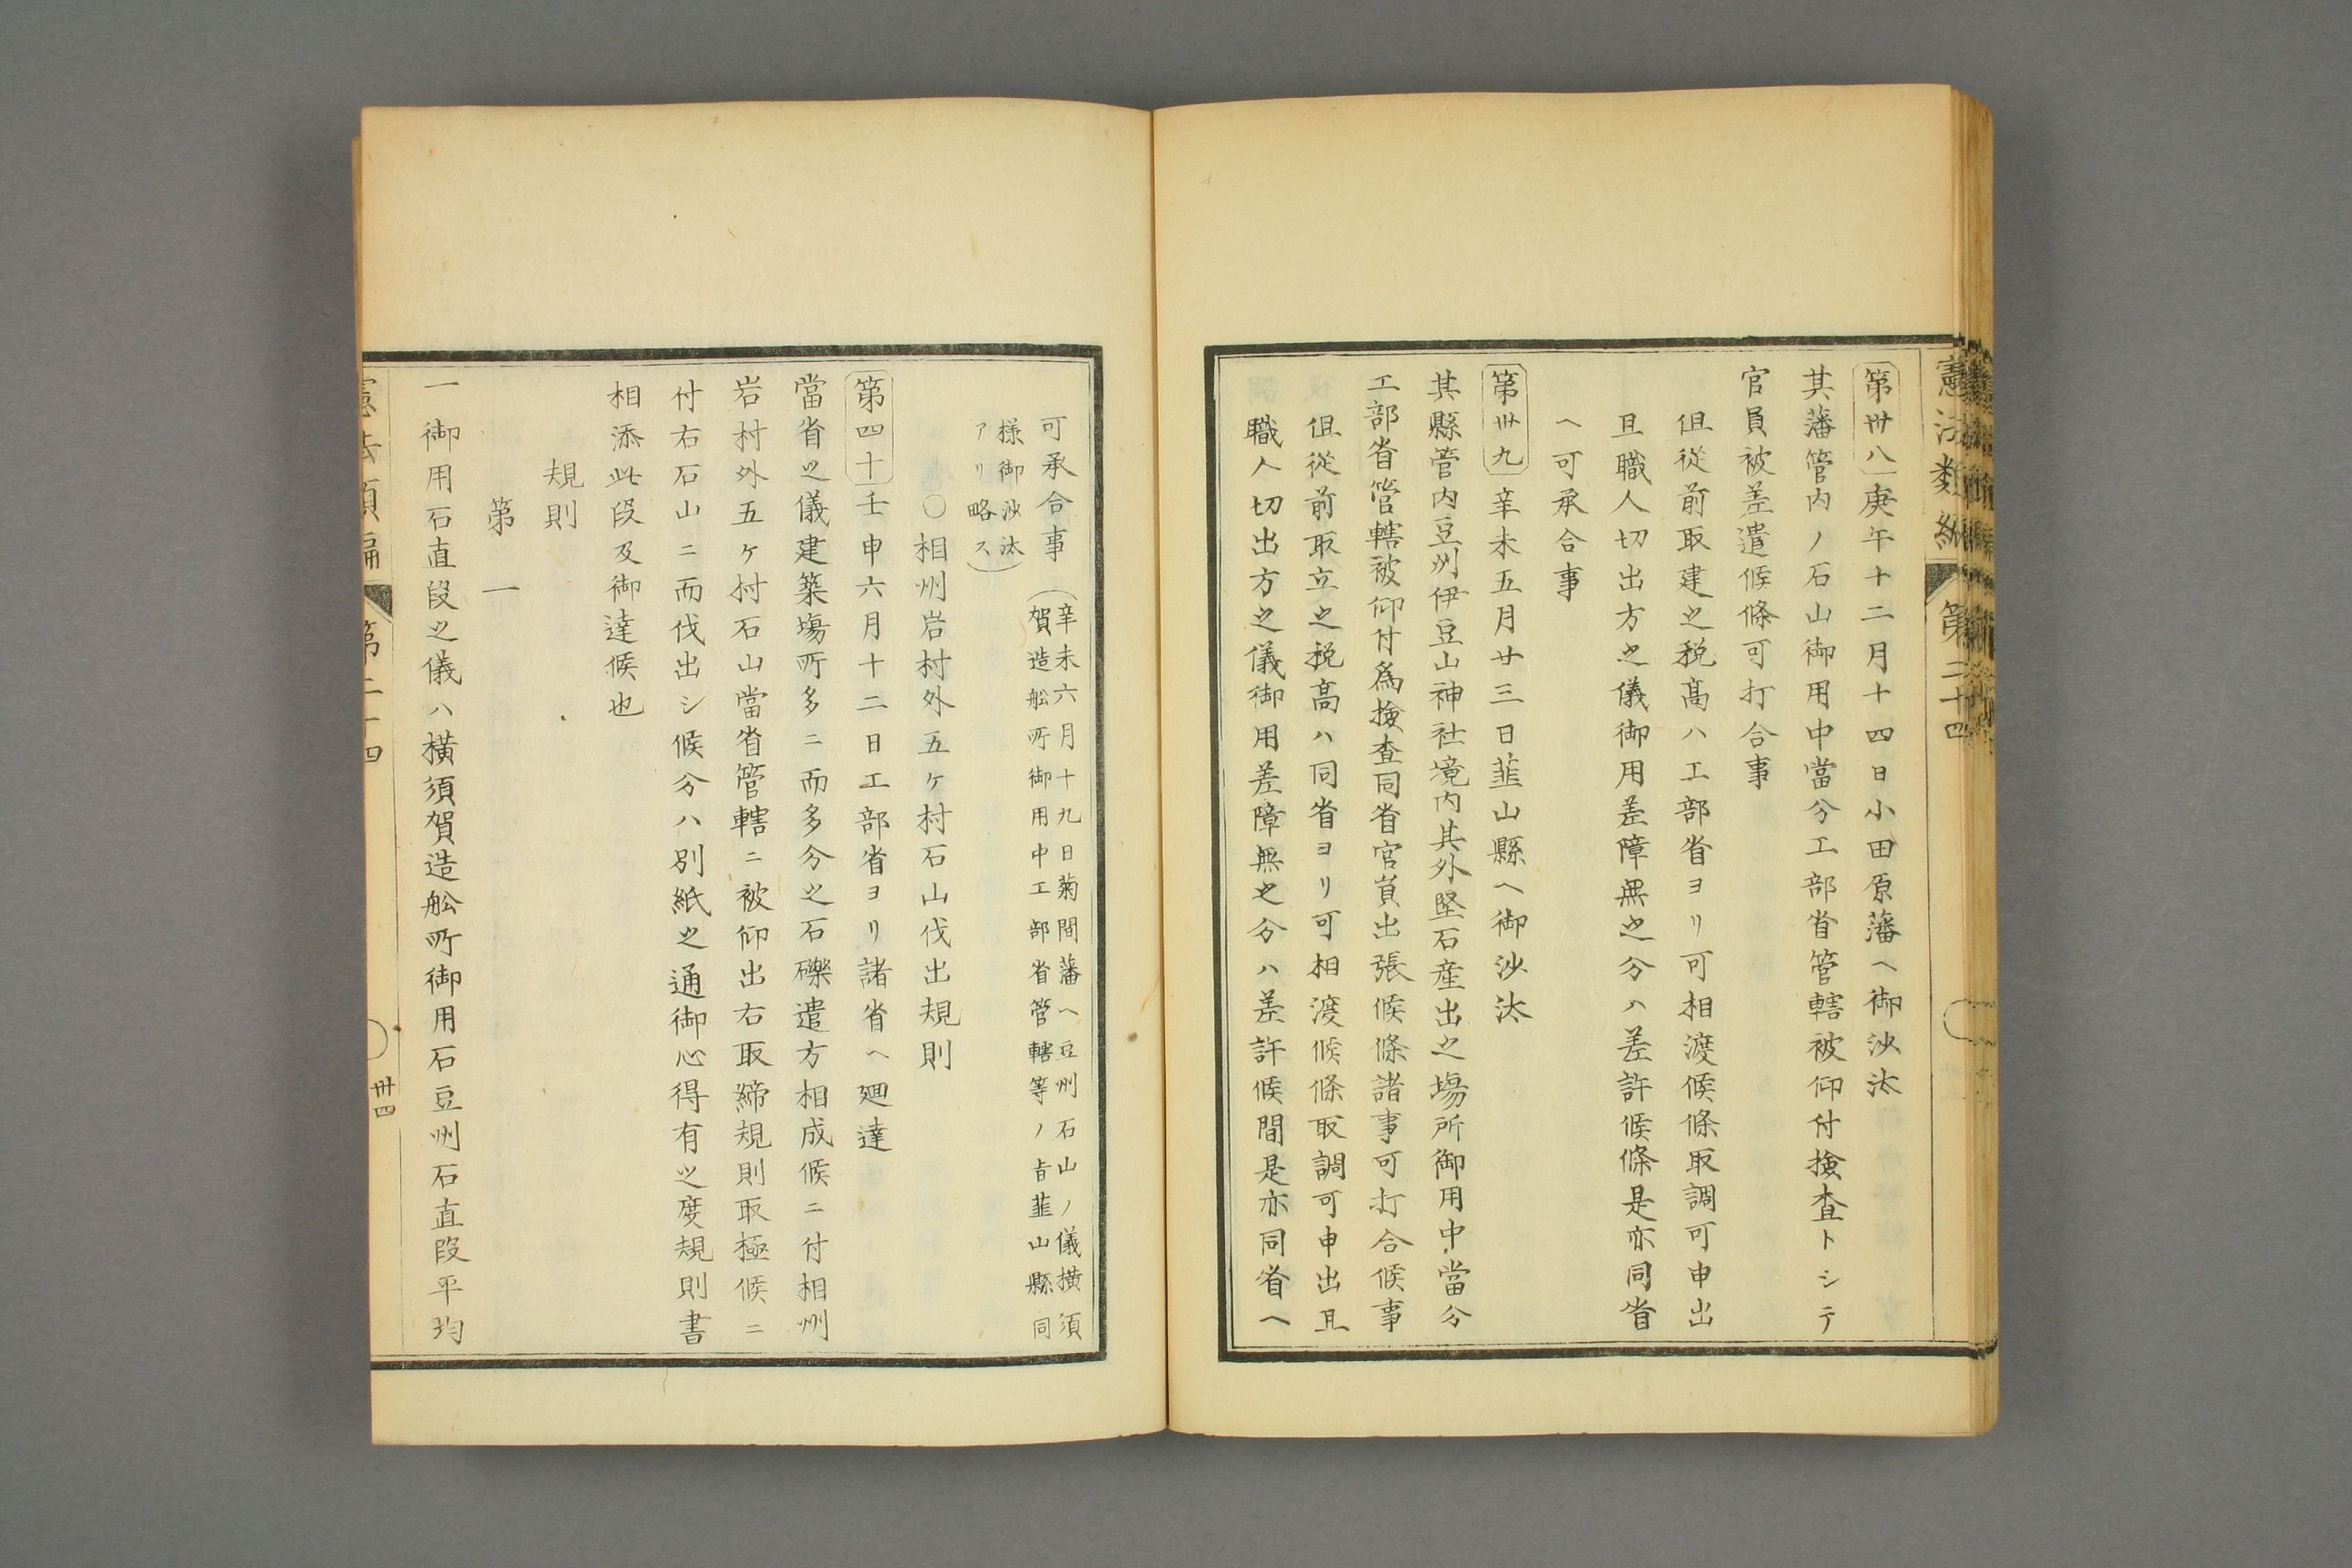 憲法類編
第二十四
第卅八 庚午十二月十四日小田原藩ヘ御沙汰
其藩管内ノ石山御用中當分工部省管轄被仰付檢査トシテ
官員被差遣候條可打合事
但從前取建之税髙ハ工部省ヨリ可相渡候條取調可申出
且職人切出方之儀御用差障無之分ハ差許候條是亦同省
ヘ可承合事
第卅九 辛未五月廿三日韮山縣ヘ御沙汰
其縣管内豆州伊豆山神社境内其外堅石産出之塲所御用中當分
工部省管轄被仰付爲檢査同省官員出張候條諸事可打合候事
但從前取立之税髙ハ同省ヨリ可相渡候條取調可申出且
職人切出方之儀御用差障無之分ハ差許候間是亦同省ヘ
可承合事
(辛未六月十九日菊間藩ヘ豆州石山ノ儀横須
賀造舩所御用中工部省管轄等ノ旨韮山縣同
様御沙汰
アリ略ス)
○相州岩村外五ケ村石山伐出規則
第四十 壬申六月十二日工部省ヨリ諸省ヘ廻達
當省之儀建築塲所多ニ而多分之石礫遣方相成候ニ付相州
岩村外五ケ村石山當省管轄ニ被仰出右取締規則取極候ニ
付右石山ニ而伐出シ候分ハ別紙之通御心得有之度規則書
相添此段及御達候也
規則
第一
一 御用石直段之儀ハ横須賀造舩所御用石豆州石直段平均
卅四